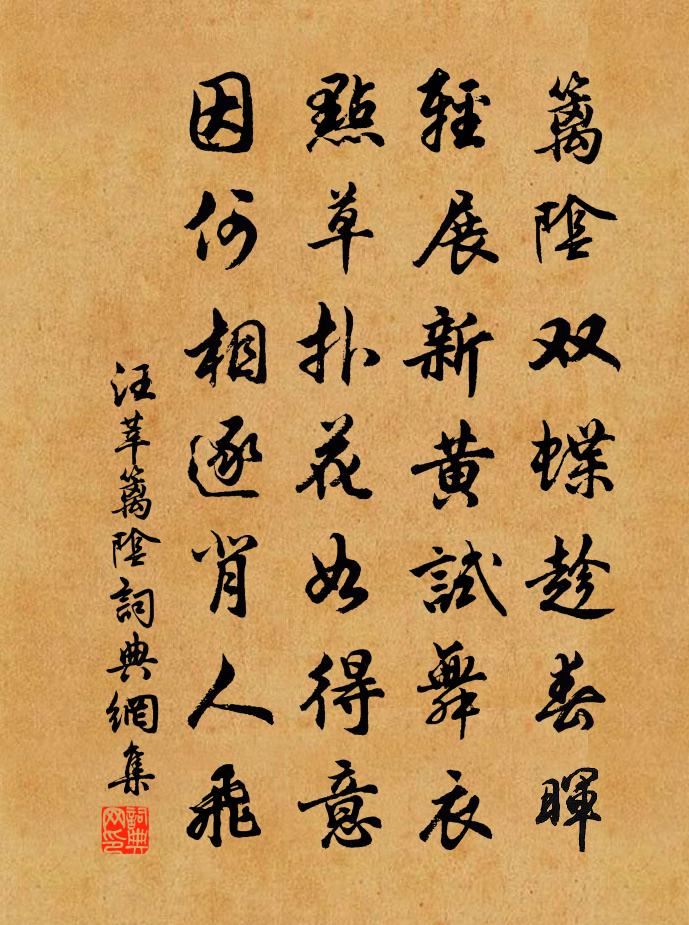 篱陰双蝶趁春暉
輕展新黄試舞衣
點草扑花如得意
因何相逐背人飛
汪莘篱陰詞典網集
詞典网印